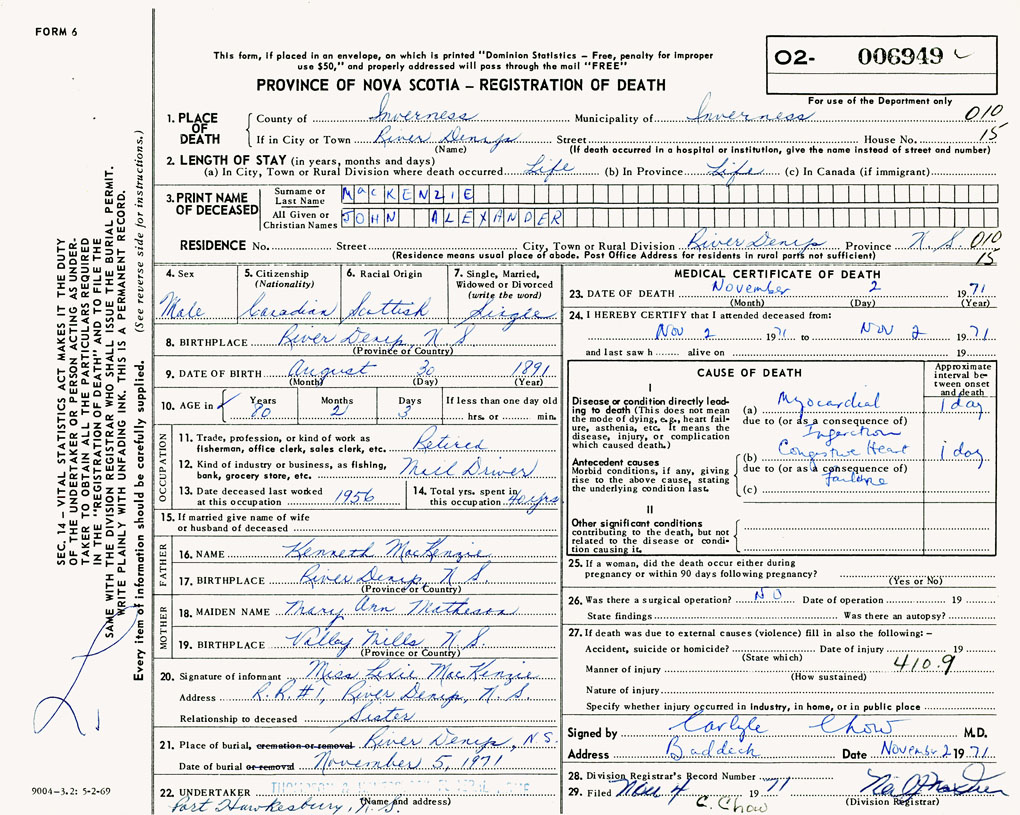 FORM 6
This form, if placed in an envelope, on which is printed "Dominion Statistics – Free, penalty for improper
use $50," and properly addressed will pass through the mail "FREE"
02- 006949
For use of the Department only
PROVINCE OF NOVA SCOTIA – REGISTRATION OF DEATH
1. PLACE OF DEATH
County of Inverness Municipality of Inverness 010
If in City or Town River Denys Street House No. 15
(Name) (If death occurred in a hospital or institution, give the name instead of street and number)
2. LENGTH OF STAY (in years, months and days)
(a) In City, Town or Rural Division where death occurred Life (b) In Province Life (c) In Canada (if immigrant)
3. PRINT NAME OF DECEASED
Surname or Last Name MacKENZIE
All Given or Christian Names JOHN ALEXANDER
RESIDENCE No. Street City, Town or Rural Division River Denys Province N.S. 010
(Residence means usual place of abode. Post Office Address for residents in rural parts not sufficient) 15
4. Sex Male
5. Citizenship (Nationality) Canadian
6. Racial Origin Scottish
7. Single, Married, Widowed or Divorced (write the word) Single
8. BIRTHPLACE River Denys, N S
(Province or Country)
9. DATE OF BIRTH August 30 1891
(Month) (Day) (Year)
10. AGE in Years 80 Months 2 Days 3 If less than one day old hrs. or min.
OCCUPATION
11. Trade, profession, or kind of work as fisherman, office clerk, sales clerk, etc. Retired
12. Kind of industry or business, as fishing, bank, grocery store, etc. Mill Driver
13. Date deceased last worked at this occupation 1956
14. Total yrs. spent in this occupation 40 yrs
15. If married give name of wife or husband of deceased
FATHER
16. NAME Kenneth MacKenzie
17. BIRTHPLACE River Denys, N.S.
(Province or Country)
MOTHER
18. MAIDEN NAME Mary Ann Matheson
19. BIRTHPLACE Valley Mills, N.S.
(Province or Country)
20. Signature of informant Miss Lexie MacKenzie
Address R.R.#1, River Denys, N.S.
Relationship to deceased Sister
21. Place of burial, cremation or removal River Denys, N.S.
Date of burial or removal November 5, 1971
22. UNDERTAKER
(Name and address)
Port Hawkesbury, N.S.
MEDICAL CERTIFICATE OF DEATH
23. DATE OF DEATH November 2 1971
(Month) (Day) (Year)
24. I HEREBY CERTIFY that I attended deceased from:
Nov 2 1971 to Nov 2 1971
and last saw h alive on 19
CAUSE OF DEATH
Approximate interval between onset and death
I
Disease or condition directly leading to death (This does not mean the mode of dying, e.g., heart failure, asthenia, etc. It means the disease, injury, or complication which caused death.)
(a) Myocardial 1 day
due to (or as a consequence of)
Infarction
Antecedent causes
Morbid conditions, if any, giving rise to the above cause, stating the underlying condition last.
(b) Congestive Heart 1 day
due to (or as a consequence of)
Failure
(c)
II
Other significant conditions
contributing to the death, but not related to the disease or condition causing it.
25. If a woman, did the death occur either during
pregnancy or within 90 days following pregnancy?
(Yes or No)
26. Was there a surgical operation? NO Date of operation 19
State findings Was there an autopsy?
27. If death was due to external causes (violence) fill in also the following: –
Accident, suicide or homicide? Date of injury 19
(State which)
Manner of injury 410.9
(How sustained)
Nature of injury
Specify whether injury occurred in industry, in home, or in public place
Signed by Carlyle Chow M.D.
Address Baddeck Date November 2 1971
28. Division Registrar's Record Number
29. Filed Nov 4 1971
C. Chow
(Division Registrar)
SEC. 14 – VITAL STATISTICS ACT MAKES IT THE DUTY
OF THE UNDERTAKER OR PERSON ACTING AS UNDER-
TAKER TO OBTAIN ALL THE PARTICULARS REQUIRED
IN THE "REGISTRATION OF DEATH" AND TO FILE THE
SAME WITH THE DIVISION REGISTRAR WHO SHALL ISSUE THE BURIAL PERMIT.
WRITE PLAINLY WITH UNFADING INK. THIS IS A PERMANENT RECORD.
Every item of information should be carefully supplied. (See reverse side for instructions.)
9004-3.2: 5-2-69